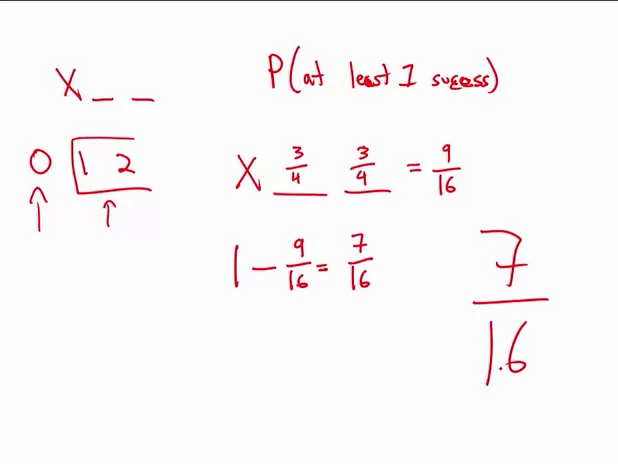 P(at least 1 sucess)
X _ _
0 1 2
X 3/4 3/4 = 9/16
1 - 9/16 = 7/16
7/16